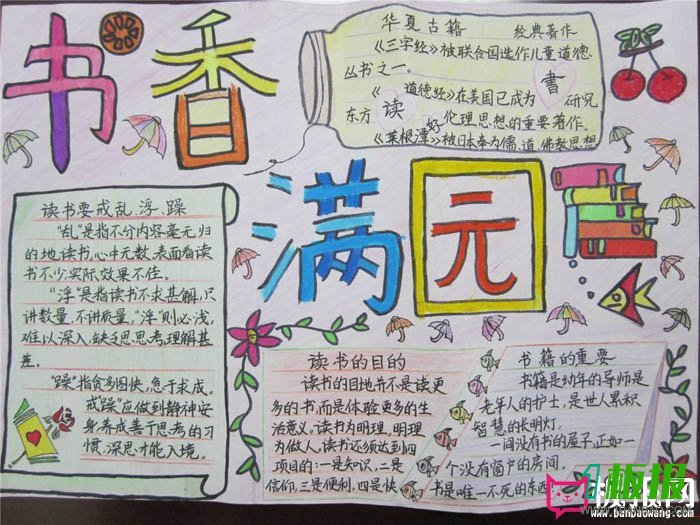 书香
满园
华夏古籍 经典著作
《三字经》被联合国选作儿童道德
丛书之一。
《道德经》在美国已成为 研究
东方 伦理思想的重要著作。
《菜根谭》被日本奉为儒、道、佛教思想
读好書
读书要戒乱、浮、躁
“乱”是指不分内容毫无归
的地读书,心中无数,表面看读
书不少实际效果不佳。
“浮”是指读书不求甚解,只
讲数量,不讲质量,“浮”则必浅,
难以深入,缺乏思思考,理解甚
差。
“躁”指贪多图快,急于求成。
戒“躁”应做到静神安
身养成善于思考的习
惯,深思才能入境。
读书的目的
读书的目地并不是读更
多的书,而是体验更多的生
活意义,读书为明理,明理
为做人,读书还须达到四
项目的:一是知识,二是
信仰,三是便利,四是快
书籍的重要
书籍是幼年的导师是
老年人的护士,是世人累积
智慧的长明灯.
一间没有书的屋子,正如一
个没有窗户的房间.
书是唯一不死的东西
板报网
www.banbaowang.com